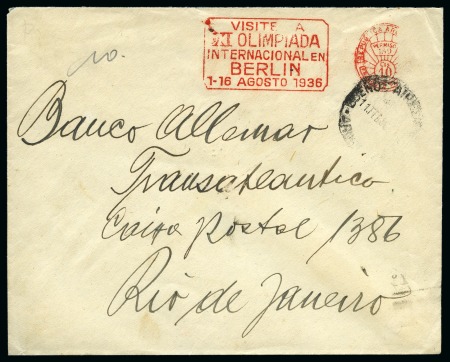 VISITE A
XI OLIMPIADA
INTERNACIONAL EN
BERLIN
1-16 AGOSTO 1936
10
BUENOS AIRES
No.
Banco Allemar
Transatlantico
Caixa postal 1386
Rio de Janeiro